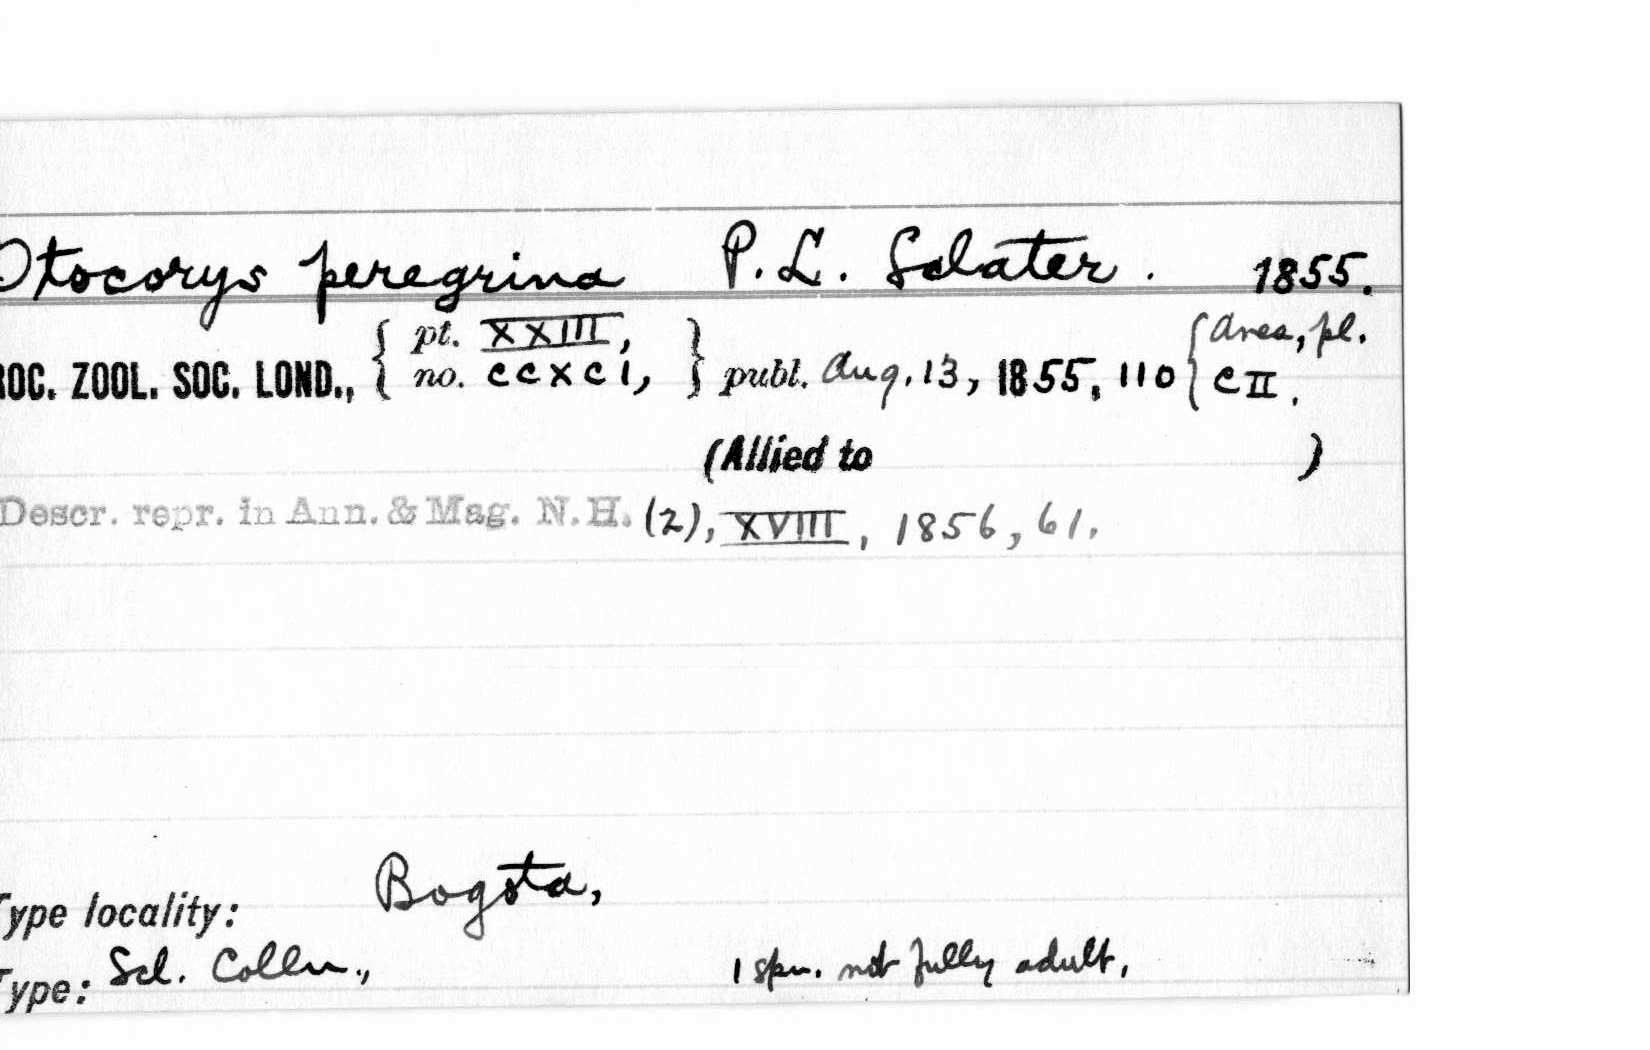 Otocorys peregrina P. L. Sclater. 1855.
ROC. ZOOL. SOC. LOND., { pt. XXIII, no. ccxci, } publ. Aug. 13, 1855, 110 { Aves, pl. CII.
(Allied to )
Descr. repr. in Ann. & Mag. N. H. (2), XVIII, 1856, 61.
Type locality: Bogota,
Type: Scl. Colln., 1 spn. not fully adult,